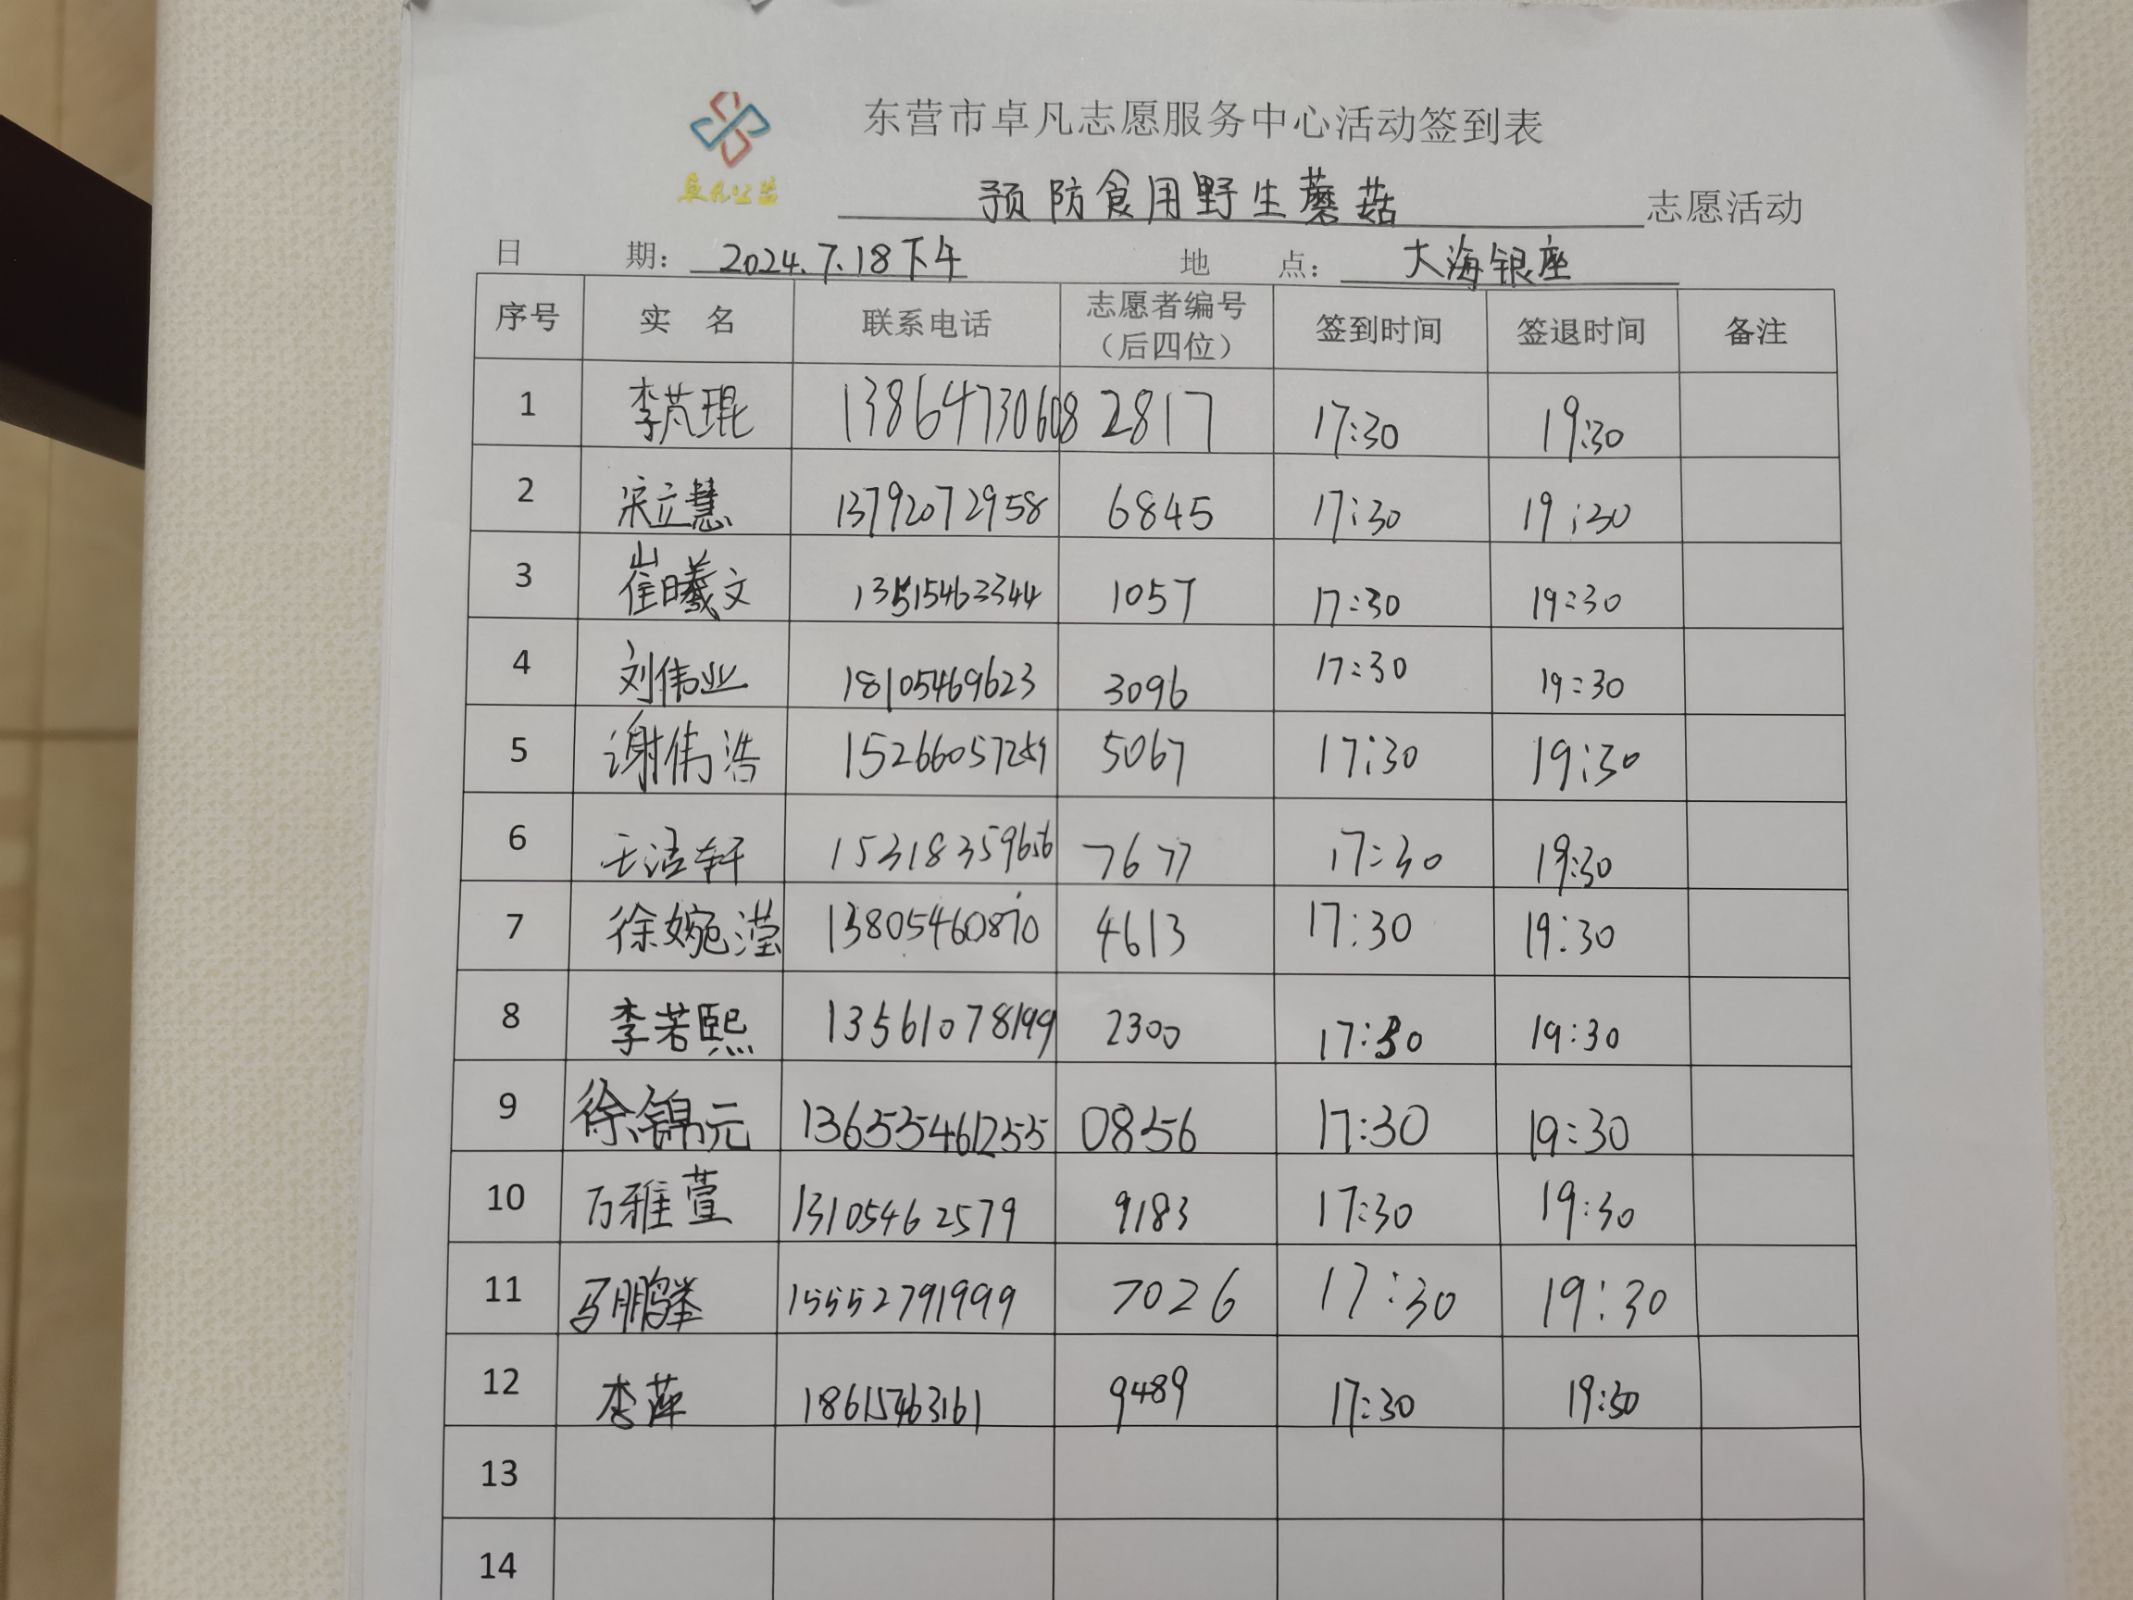 东营市卓凡志愿服务中心活动签到表
卓凡公益
预防食用野生蘑菇 志愿活动
日 期：2024.7.18下午 地 点：大海银座
序号 实 名 联系电话 志愿者编号（后四位） 签到时间 签退时间 备注
1 李芃琨 13864730608 2817 17:30 19:30
2 宋立慧 13792072958 6845 17:30 19:30
3 崔曦文 13515463344 1057 17:30 19:30
4 刘伟业 18105469623 3096 17:30 19:30
5 谢伟浩 15266057259 5067 17:30 19:30
6 王洁轩 15318359656 7677 17:30 19:30
7 徐婉滢 13805460870 4613 17:30 19:30
8 李若熙 13561078199 2300 17:30 19:30
9 徐锦元 136535461255 0856 17:30 19:30
10 万雅萱 13105462579 9183 17:30 19:30
11 马鹏 15552791999 7026 17:30 19:30
12 李萍 18615463161 9489 17:30 19:30
13
14